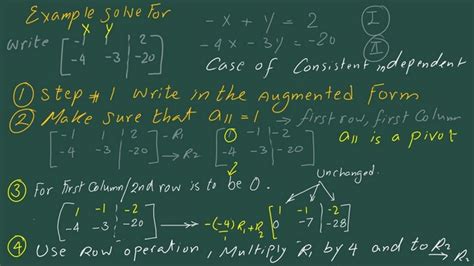 Example solve For
-x + y = 2 I
-4x -3y = -20 II
x y
Write [-1 1 | 2
-4 -3 | -20]
Case of Consistent independent
① Step # 1 Write in the Augmented Form
② Make sure that a11 = 1 → first row, first Column
[-1 1 | 2 -R1 [1 -1 | -2
-4 -3 | -20] → R2 -4 -3 | -20] a11 is a pivot
Unchanged
③ For first Column/2nd row is to be 0.
[1 -1 | -2 [1 -1 | -2
-4 -3 | -20] → -(-4)R1+R2 0 -7 | -28]
④ Use Row operation, Multiply R1 by 4 and to R2 → R2